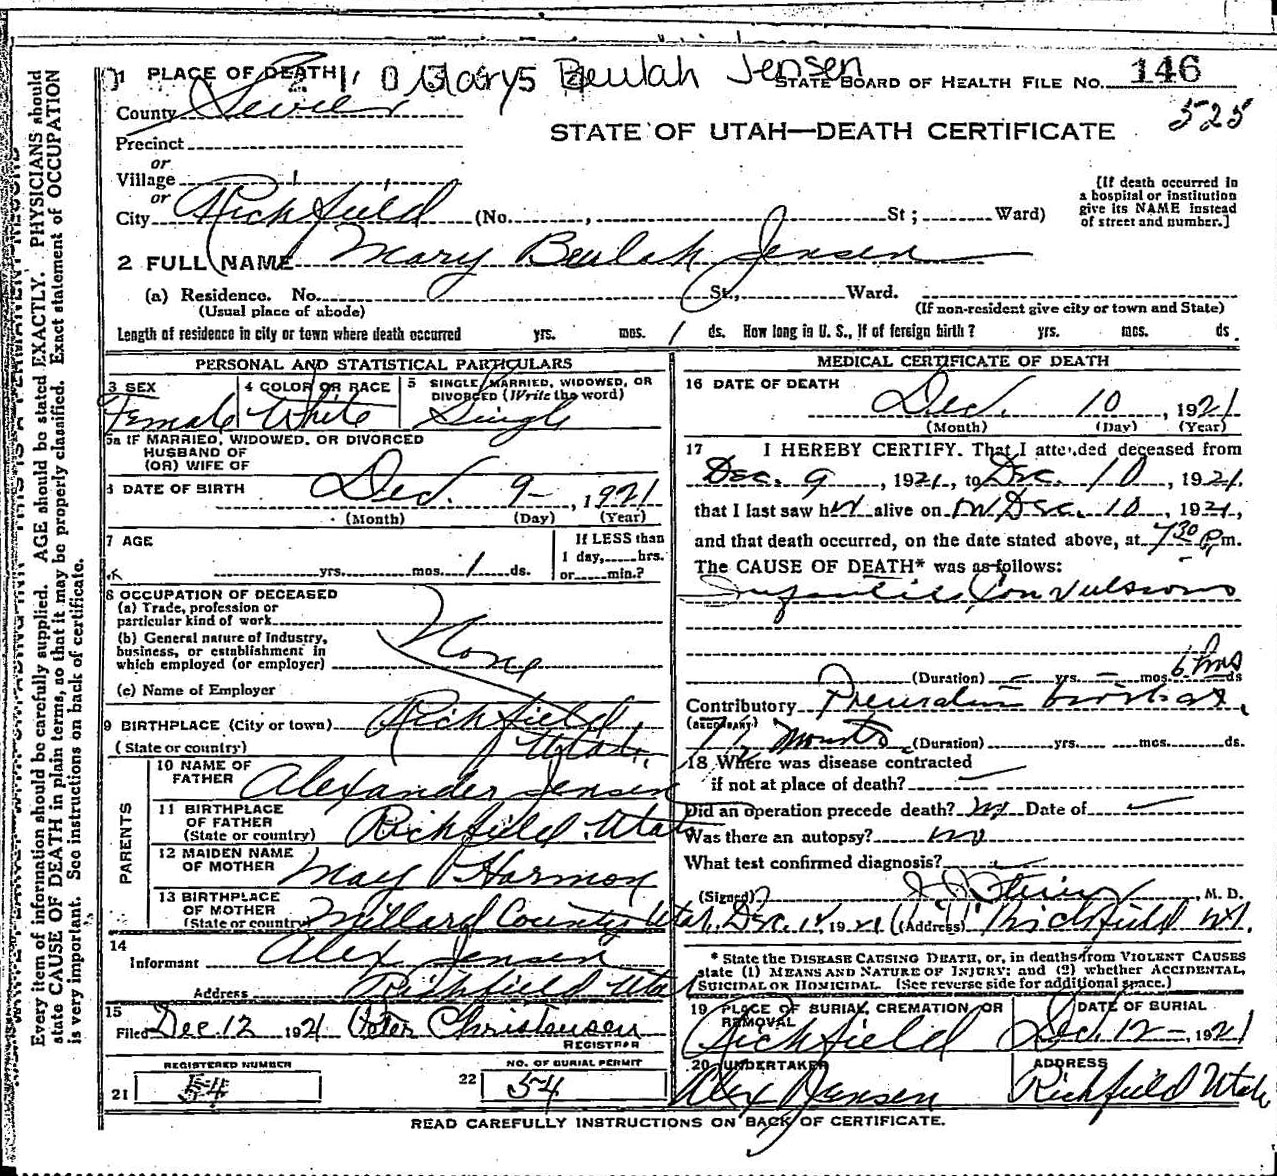 1 PLACE OF DEATH Mary Beulah Jensen STATE BOARD OF HEALTH FILE NO. 146
County Sevier 525
STATE OF UTAH—DEATH CERTIFICATE
Precinct
or
Village
or
City Richfield (No. , St; Ward)
[If death occurred in
a hospital or institution
give its NAME instead
of street and number.]
2 FULL NAME Mary Beulah Jensen
(a) Residence. No. St., Ward.
(Usual place of abode) (If non-resident give city or town and State)
Length of residence in city or town where death occurred yrs. mos. 1 ds. How long in U. S., if of foreign birth? yrs. mos. ds.
PERSONAL AND STATISTICAL PARTICULARS
3 SEX 4 COLOR OR RACE 5 SINGLE, MARRIED, WIDOWED, OR
DIVORCED (Write the word)
Female White Single
5a IF MARRIED, WIDOWED, OR DIVORCED
HUSBAND OF
(OR) WIFE OF
6 DATE OF BIRTH Dec. 9- , 1921
(Month) (Day) (Year)
7 AGE yrs. mos. 1 ds.
If LESS than
1 day, hrs.
or min.?
8 OCCUPATION OF DECEASED
(a) Trade, profession or
particular kind of work
(b) General nature of Industry,
business, or establishment in
which employed (or employer)
None
(c) Name of Employer
9 BIRTHPLACE (City or town) Richfield
(State or country) Utah.
PARENTS
10 NAME OF
FATHER Alexander Jensen
11 BIRTHPLACE
OF FATHER
(State or country) Richfield Utah
12 MAIDEN NAME
OF MOTHER May Harmon
13 BIRTHPLACE
OF MOTHER
(State or country) Millard County Utah
14
Informant Alex Jensen
Address Richfield Utah
15
Filed Dec 12 1921 Peter Christensen
REGISTRAR
REGISTERED NUMBER NO. OF BURIAL PERMIT
21 54 22 54
MEDICAL CERTIFICATE OF DEATH
16 DATE OF DEATH
Dec. 10 , 1921
(Month) (Day) (Year)
17 I HEREBY CERTIFY. That I attended deceased from
Dec. 9 , 1921, to Dec. 10 , 1921.
that I last saw her alive on Dec. 10 , 1921,
and that death occurred, on the date stated above, at 7 30 P.m.
The CAUSE OF DEATH* was as follows:
Infantile Convulsions
6 hrs
(Duration) yrs. mos. ds
Contributory
(SECONDARY)
(Duration) yrs. mos. ds.
18 Where was disease contracted
if not at place of death?
Did an operation precede death? no Date of
Was there an autopsy? no
What test confirmed diagnosis?
(Signed) M. D.
Dec. 1921 (Address) Richfield Ut.
* State the DISEASE CAUSING DEATH, or, in deaths from VIOLENT CAUSES
state (1) MEANS AND NATURE OF INJURY: and (2) whether ACCIDENTAL,
SUICIDAL OR HOMICIDAL. (See reverse side for additional space.)
19 PLACE OF BURIAL, CREMATION, OR
REMOVAL DATE OF BURIAL
Richfield Dec. 12- , 1921
20 UNDERTAKER ADDRESS
Alex Jensen Richfield Utah
READ CAREFULLY INSTRUCTIONS ON BACK OF CERTIFICATE.
Every item of information should be carefully supplied. AGE should be stated EXACTLY. PHYSICIANS should
state CAUSE OF DEATH in plain terms, so that it may be properly classified. Exact statement of OCCUPATION
is very important. See instructions on back of certificate.